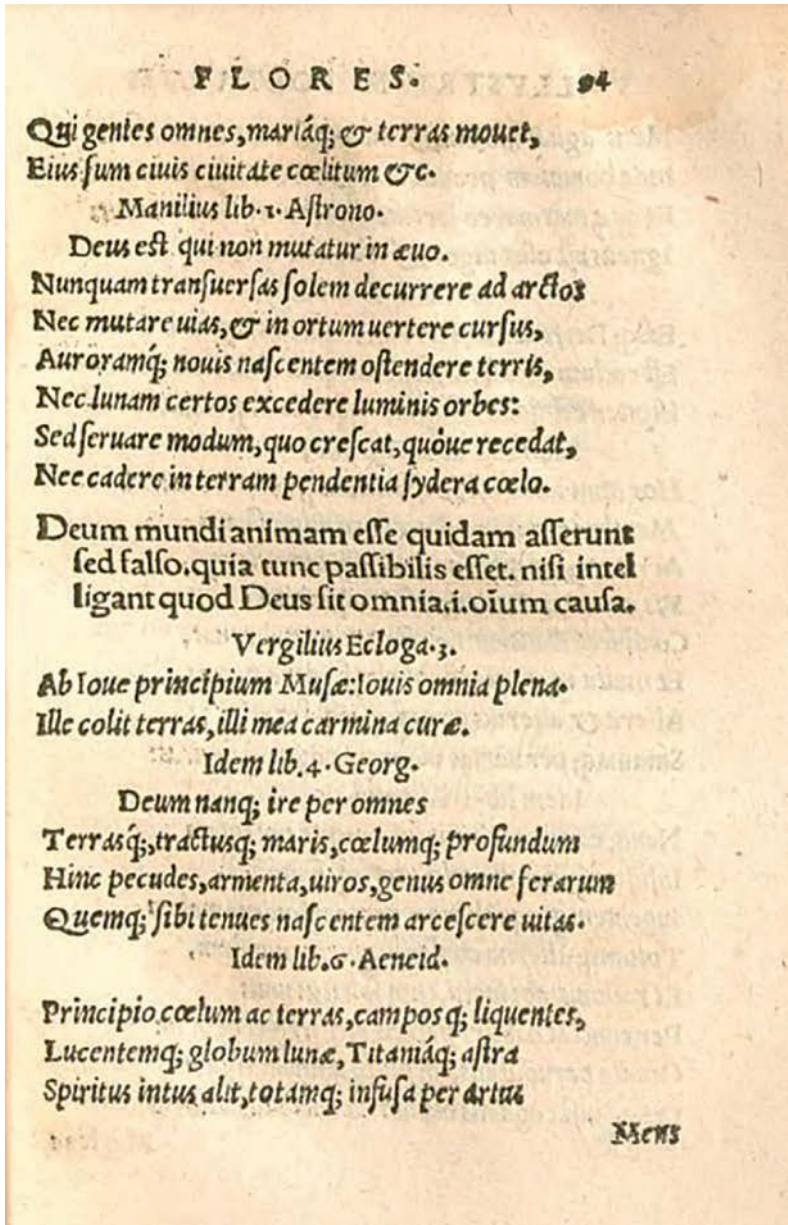 FLORES. 94
Qui gentes omnes, mariáq; & terras mouet,
Eius sum ciuis ciuitate cœlitum &c.
Manilius lib. 1. Astrono.
Deus est qui non mutatur in æuo.
Nunquam transuersas solem decurrere ad arctos
Nec mutare uias, & in ortum uertere cursus,
Auroramq́; nouis nascentem ostendere terris,
Nec lunam certos excedere luminis orbes:
Sed seruare modum, quo crescat, quòue recedat,
Nec cadere in terram pendentia sydera cœlo.
Deum mundi animam esse quidam asserunt
sed falso. quia tunc passibilis esset. nisi intel
ligant quod Deus sit omnia .i. oīum causa.
Vergilius Ecloga. 3.
Ab Ioue principium Musæ: Iouis omnia plena.
Ille colit terras, illi mea carmina curæ.
Idem lib. 4. Georg.
Deum nanq; ire per omnes
Terrasq́;, tractusq; maris, cœlumq; profundum
Hinc pecudes, armenta, uiros, genus omne ferarum
Quemq; sibi tenues nascentem arcescere uitas.
Idem lib. 6. Aeneid.
Principio cœlum ac terras, camposq; liquentes,
Lucentemq; globum lunæ, Titaniáq; astra
Spiritus intus alit, totamq; infusa per artus
Mens